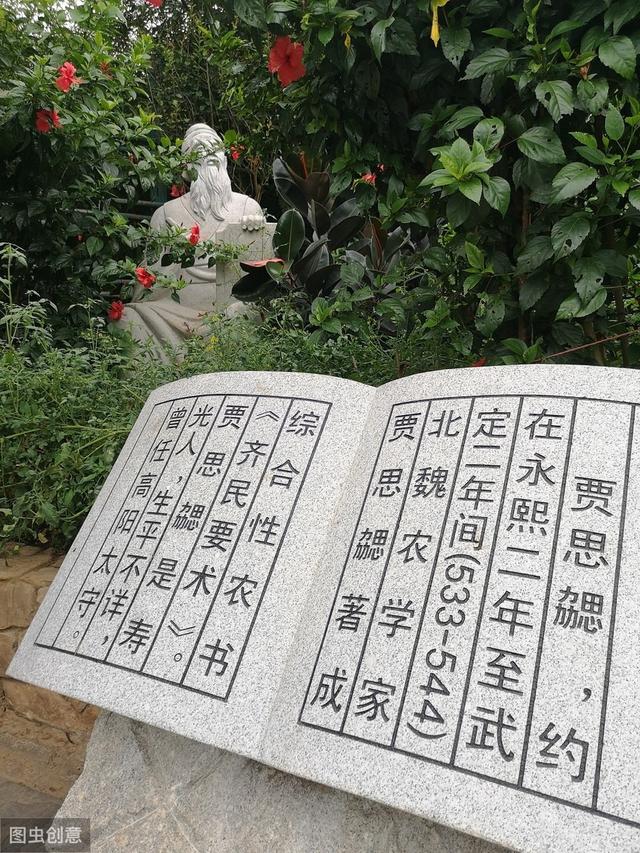 贾思勰，约
在永熙二年至武
定二年间(533-544)
北魏农学家
贾思勰著成
综合性农书
《齐民要术》。
贾思勰是寿
光人，生平不详，
曾任高阳太守。
图虫创意